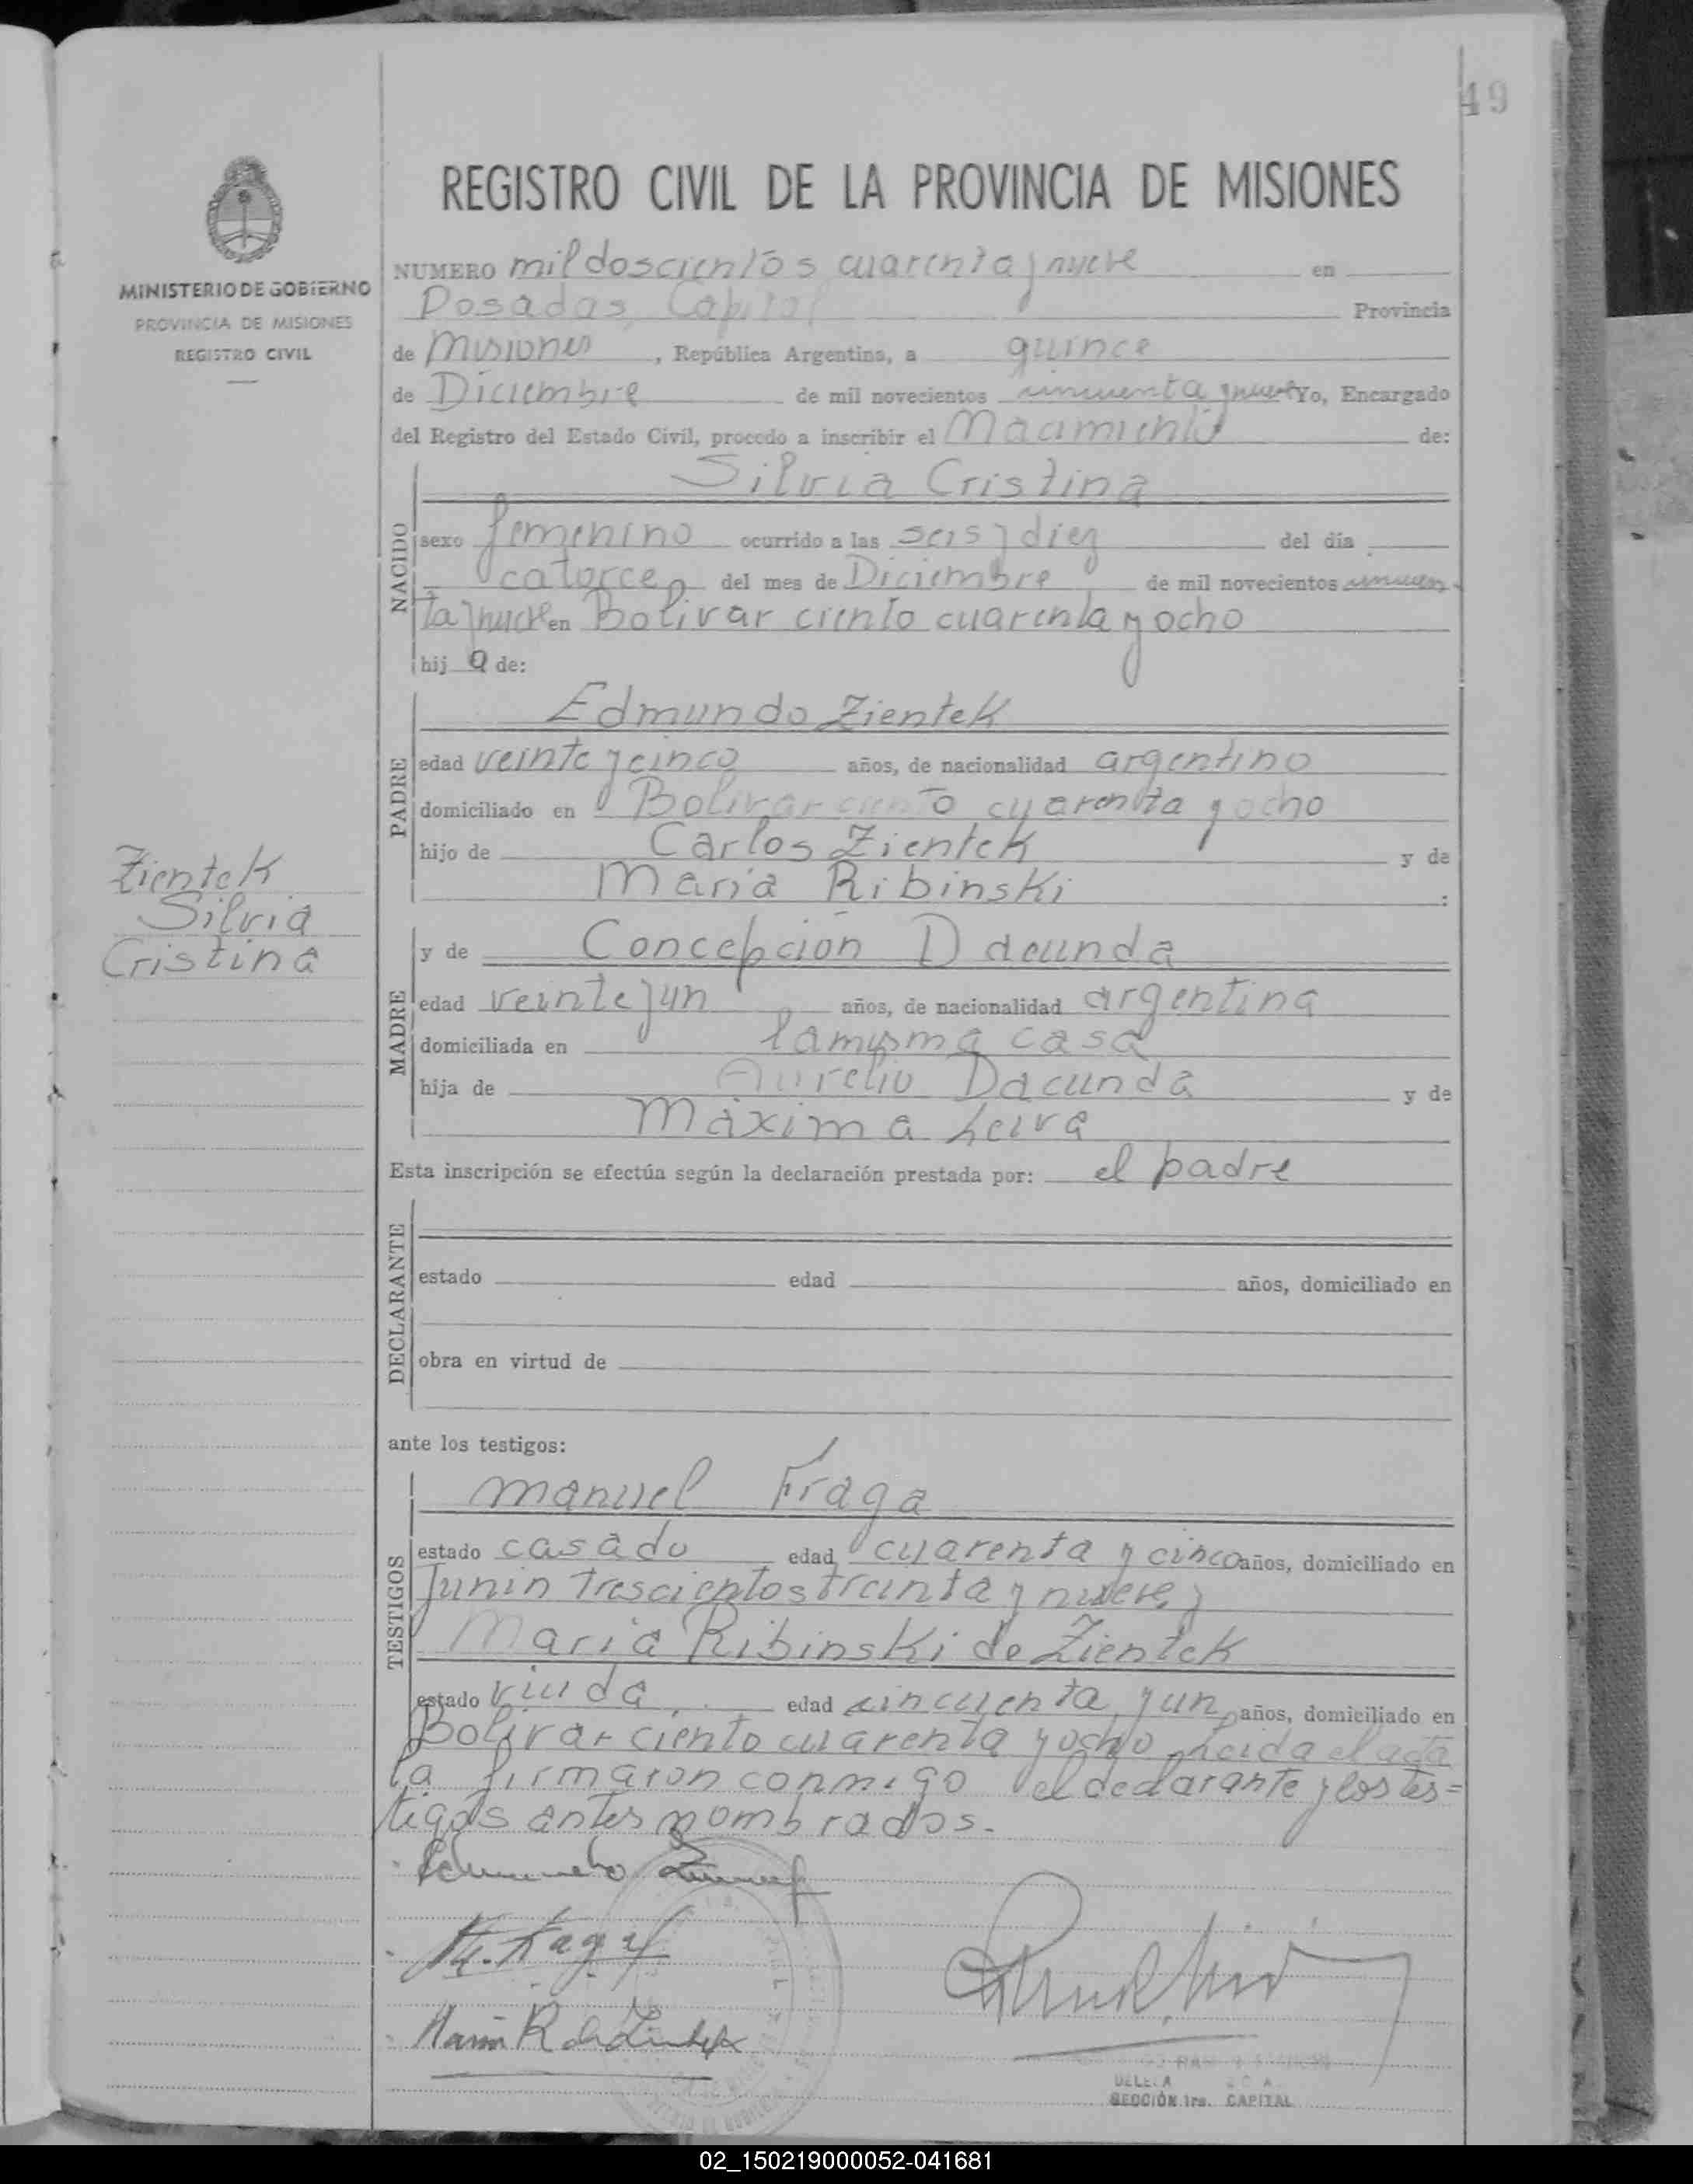 49
REGISTRO CIVIL DE LA PROVINCIA DE MISIONES
MINISTERIO DE GOBIERNO
PROVINCIA DE MISIONES
REGISTRO CIVIL
NUMERO mil doscientos cuarenta y nueve en
Posadas, Capital Provincia
de Misiones, República Argentina, a quince
de Diciembre de mil novecientos cincuenta y nueve Yo, Encargado
del Registro del Estado Civil, procedo a inscribir el Nacimiento de:
NACIDO
Silvia Cristina
sexo femenino ocurrido a las seis y diez del día
catorce del mes de Diciembre de mil novecientos cincuen-
ta y nueve en Bolivar ciento cuarenta y ocho
hij a de:
PADRE
Edmundo Zientek
edad veinte y cinco años, de nacionalidad argentino
domiciliado en Bolivar ciento cuarenta y ocho
hijo de Carlos Zientek y de
Maria Ribinski :
Zientek
Silvia
Cristina
MADRE
y de Concepción Dacunda
edad veinte y un años, de nacionalidad argentina
domiciliada en la misma casa
hija de Aurelio Dacunda y de
Máxima Leiva
Esta inscripción se efectúa según la declaración prestada por: el padre
DECLARANTE
estado edad años, domiciliado en
obra en virtud de
ante los testigos:
TESTIGOS
Manuel Fraga
estado casado edad cuarenta y cinco años, domiciliado en
Junin trescientos treinta y nueve y
Maria Ribinski de Zientek
estado viuda edad cincuenta y un años, domiciliado en
Bolivar ciento cuarenta y ocho. Leida el acta
la firmaron conmigo el declarante y los tes=
tigos antes nombrados.
Edmundo Zientek
M. Fraga
Maria R de Zientek
SECCIÓN 1ra. CAPITAL
02_150219000052-041681